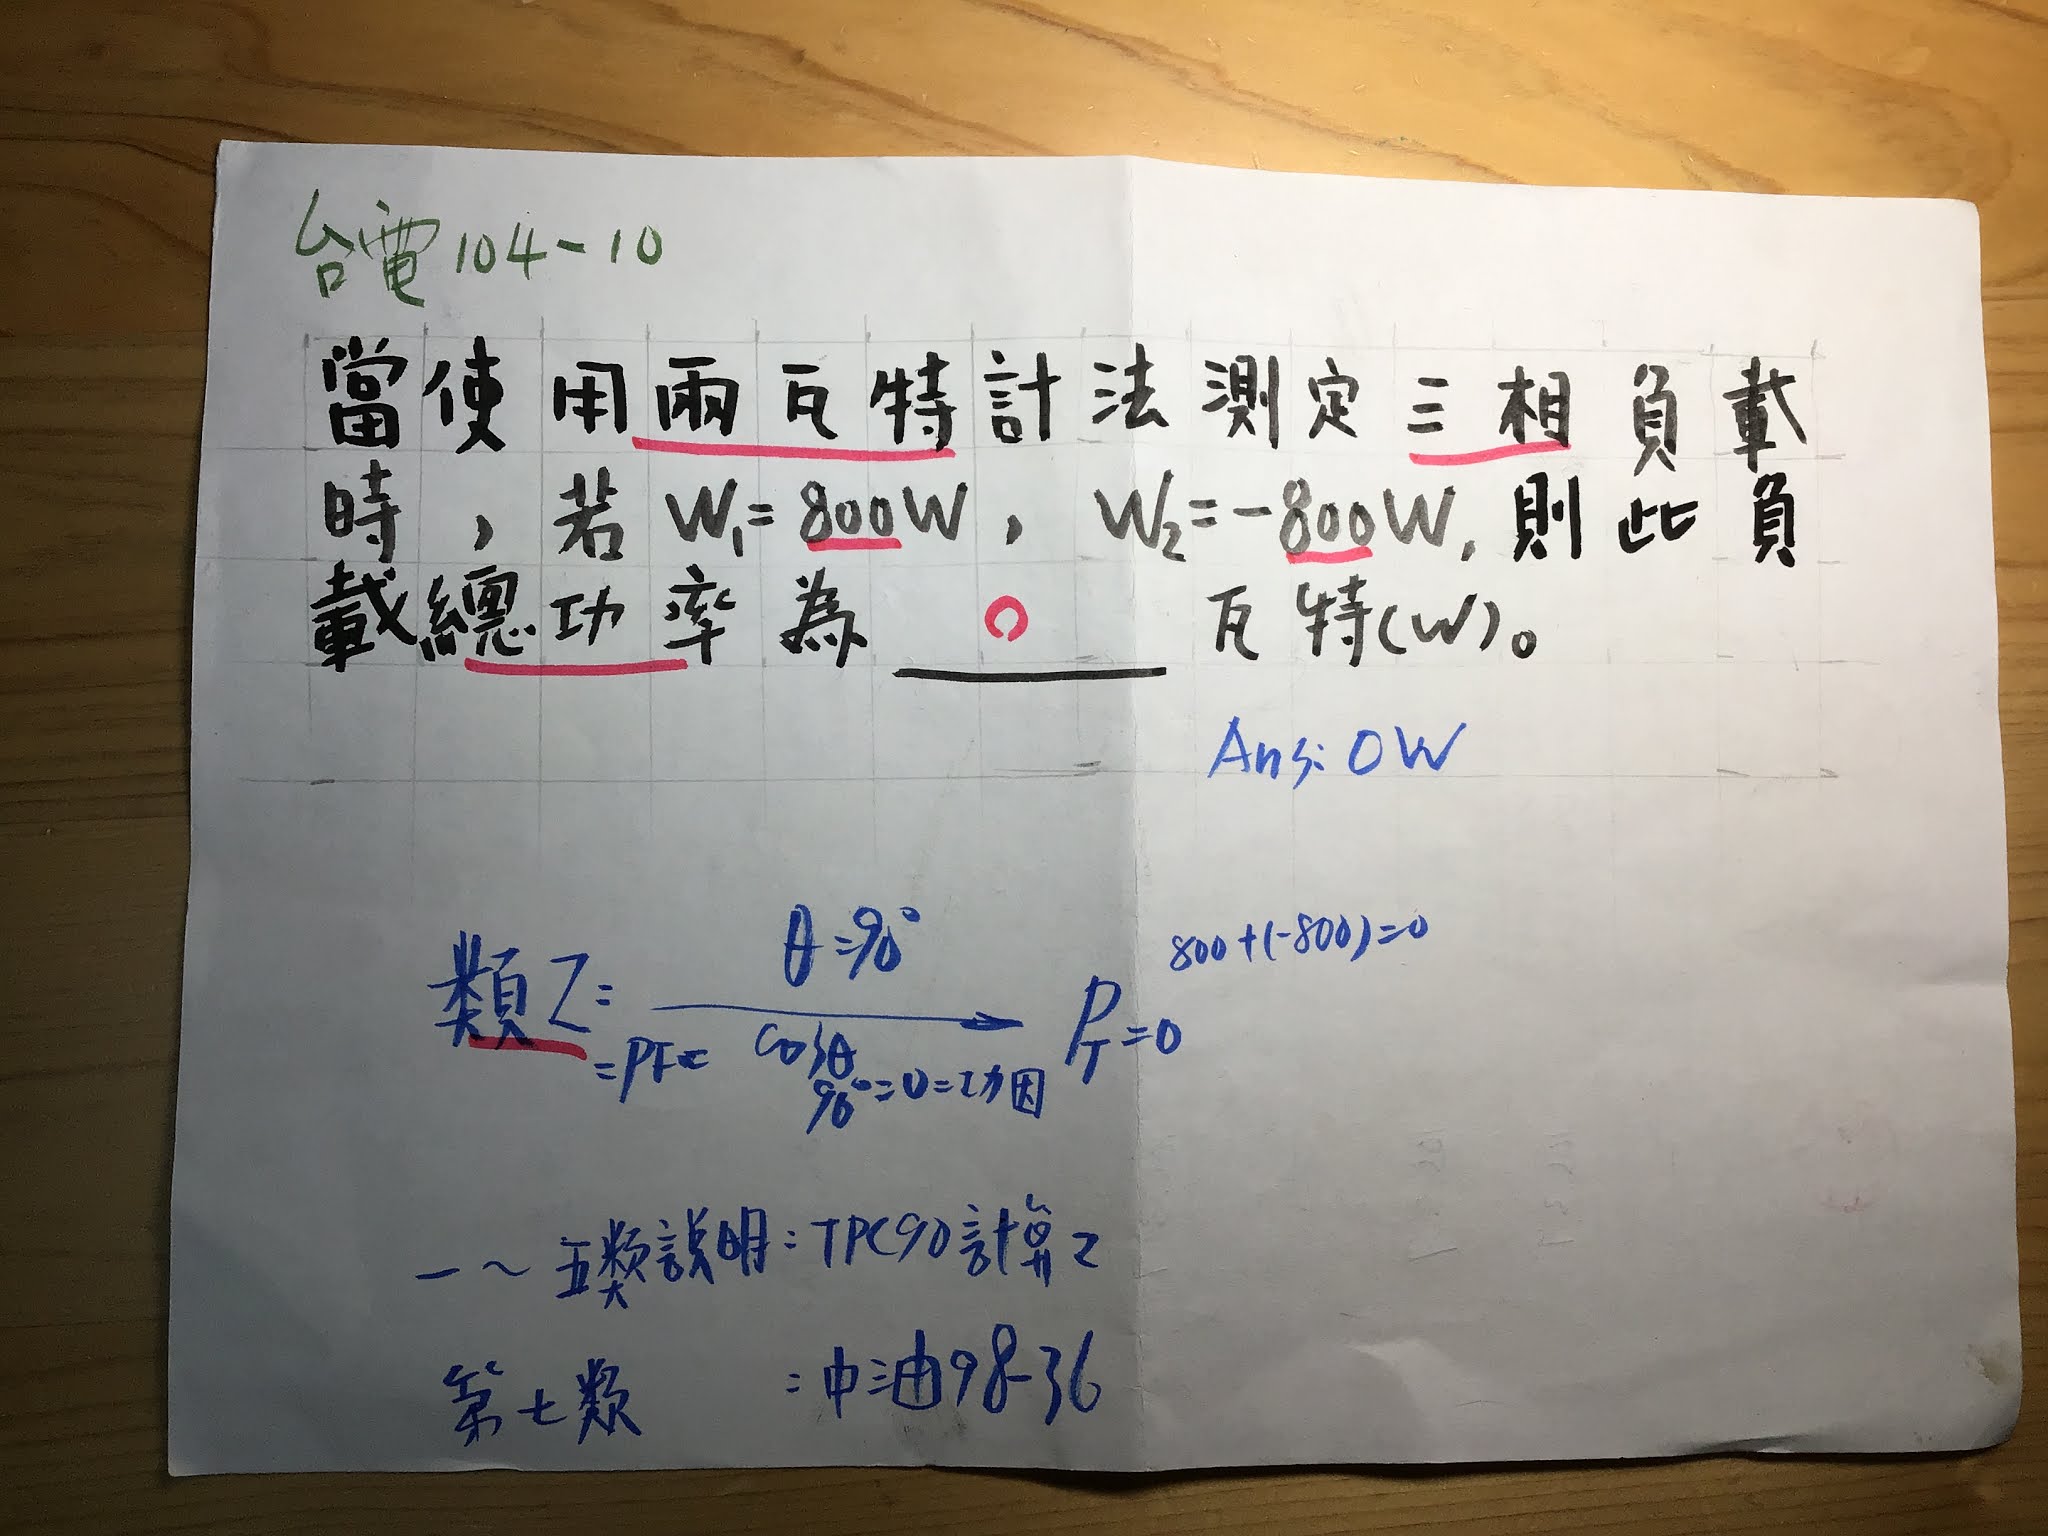 台電104-10
當使用兩瓦特計法測定三相負載
時，若W₁=800W，W₂=-800W,則此負
載總功率為 0 瓦特(W)。
Ans: 0W
類乙=
θ=90°
=PF=
cosθ
90°=0=功因
P_T=0
800+(-800)=0
一~五類說明:TPC90計算2
第七類 :中油98-36